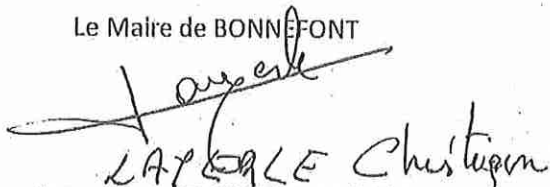 Le Maire de BONNEFONT
LAPERLE Christian